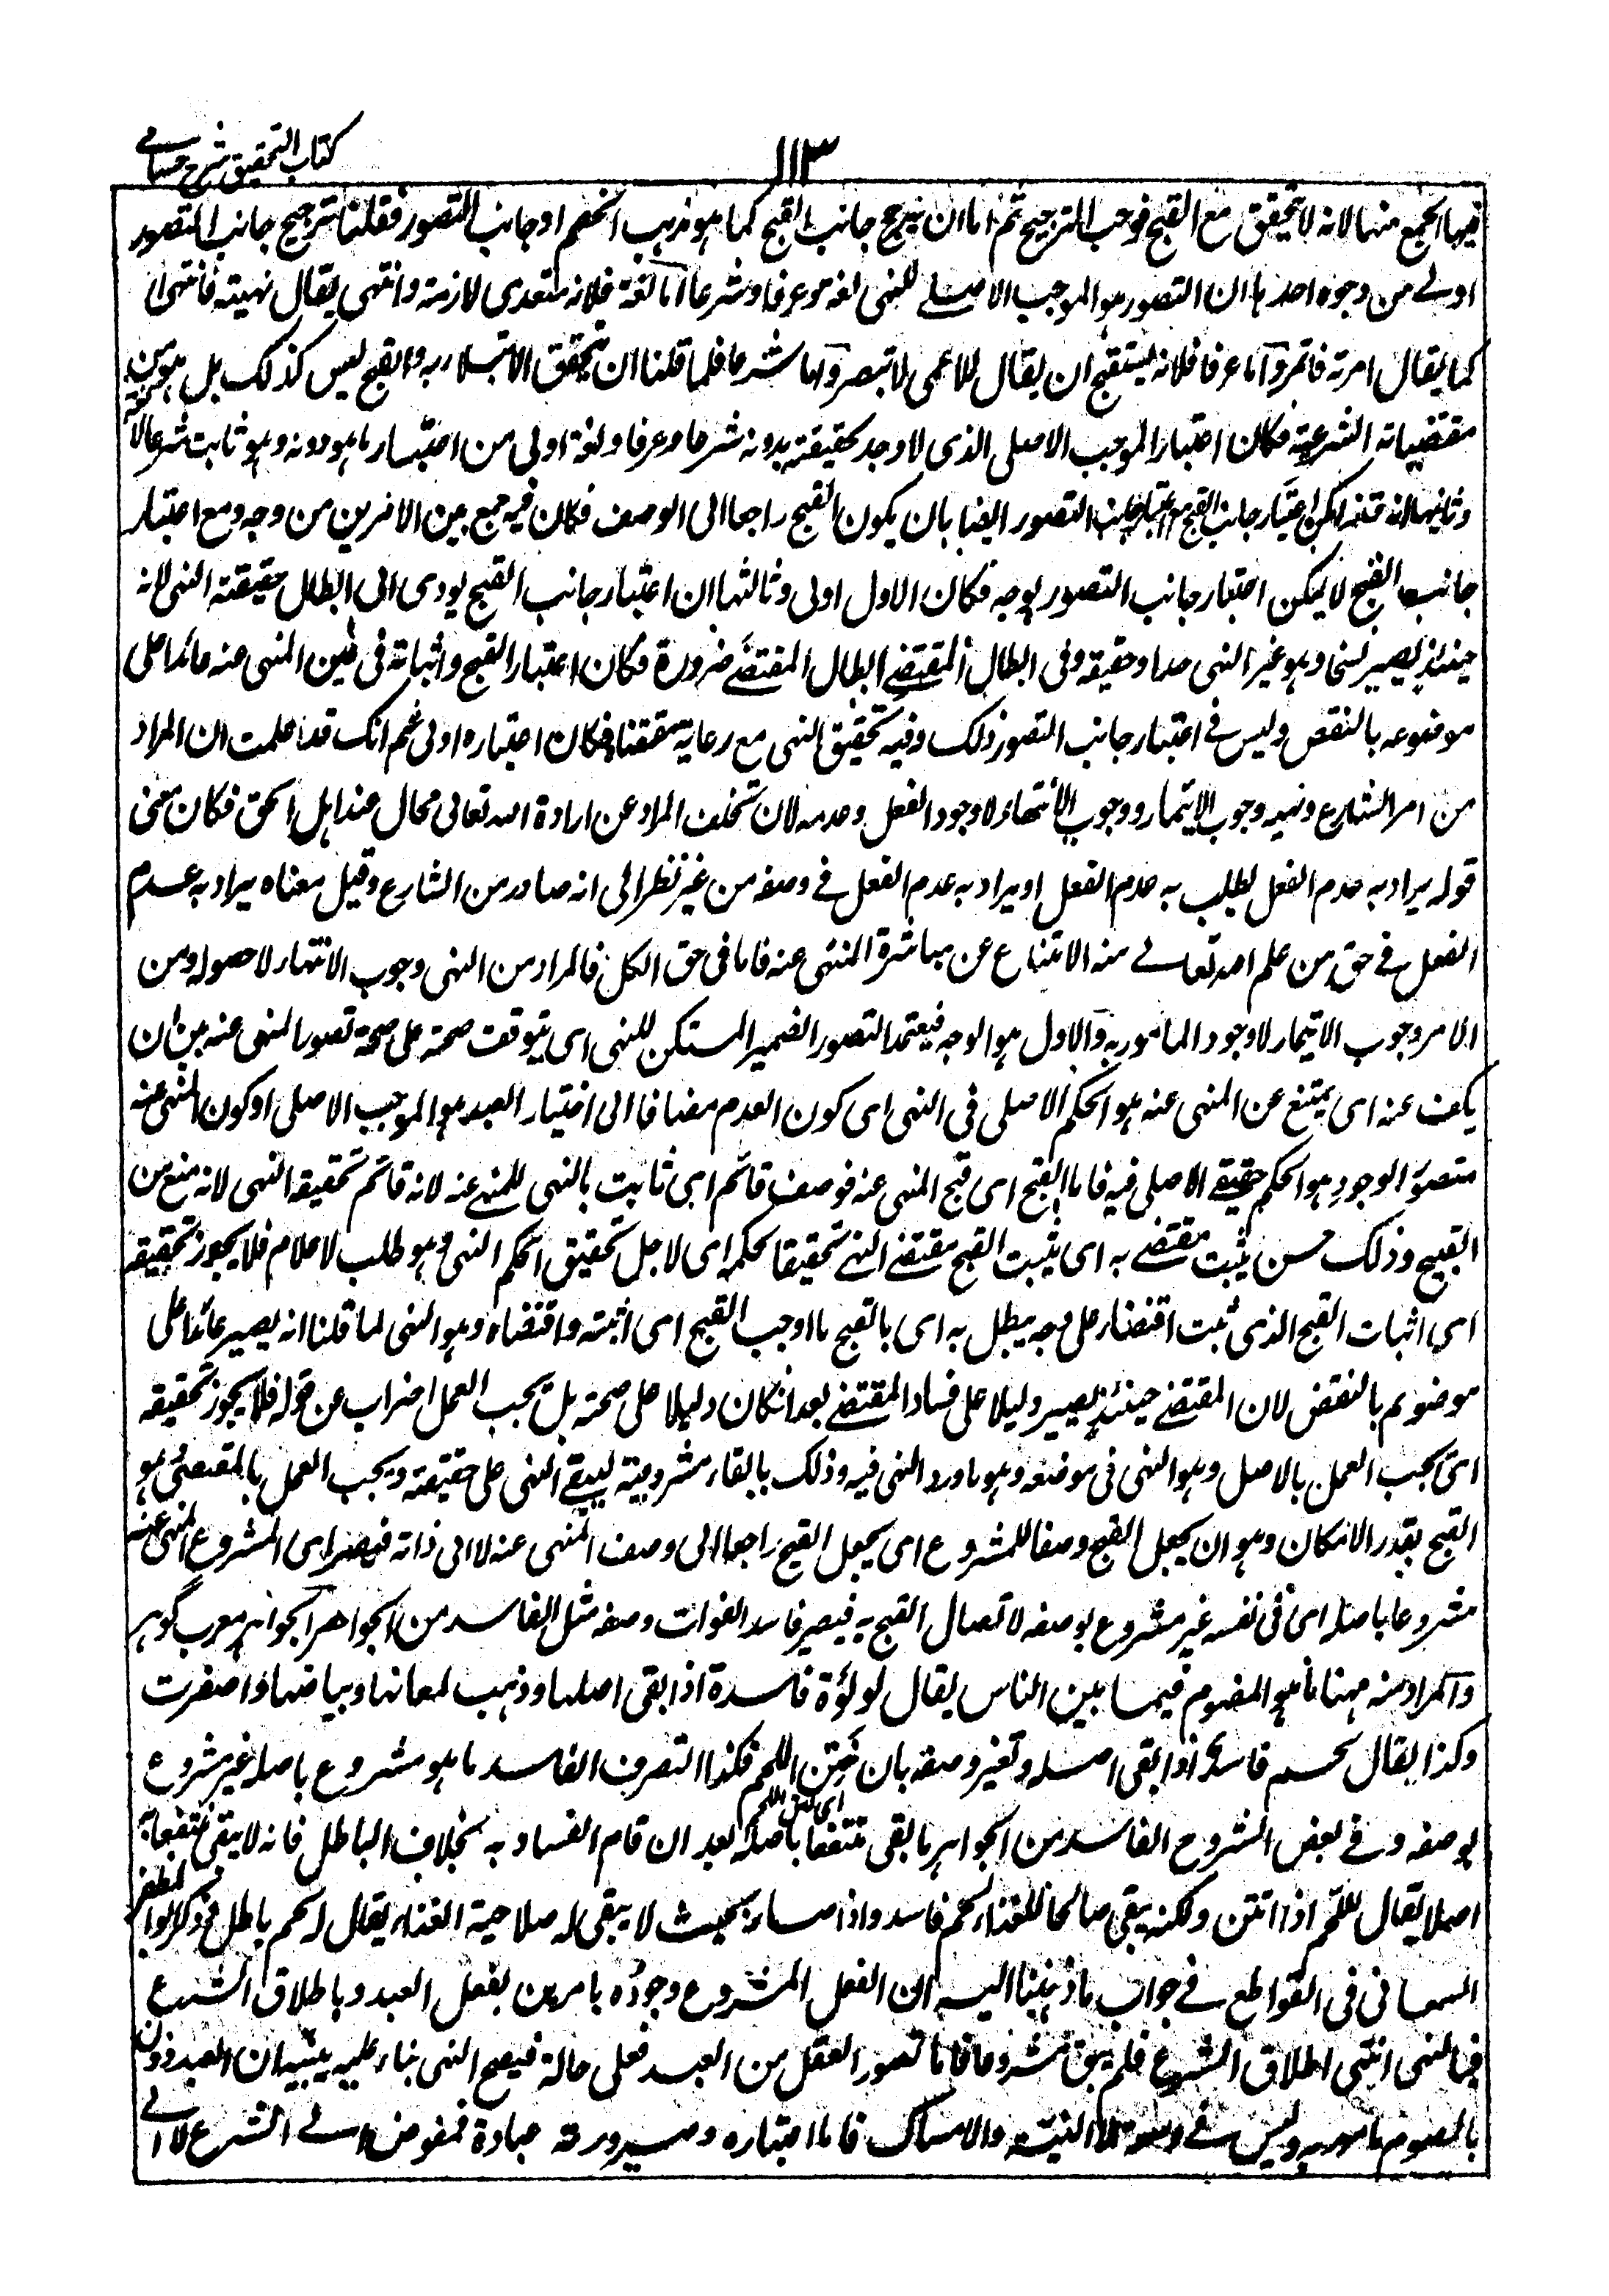 كتاب التحقيق شرح حسامي
١١٣
فيها الجمع منهما لانه لا يتحقق مع القبح فوجب الترجيح ثم اما ان يترجح جانب القبح كما هو مذهب الخصم او جانب التصور فقلنا ترجيح جانب التصور
اولى من وجوه احدها ان التصور هو الموجب الاصلي للنهي لغة وعرفا وشرعا اما لغة فلانه متعدى لازمه وانتهى يقال نهيته فانتهى
كما يقال امرته فاتمر واما عرفا فلانه يستقبح ان يقال للاعمى لا تبصر واما شرعا فلما قلنا ان يتحقق الابتلاء به والقبح ليس كذلك بل هو من
مقتضياته الشرعية فكان اعتبار الموجب الاصلى الذى لا وجد لحقيقته بدونه شرعا وعرفا ولغة اولى من اعتبار ما هو دونه وهو ثابت شرعا لا لغة
وثانيها انه قد امكن اعتبار جانب القبح مع اعتبار جانب التصور ايضا بان يكون القبح راجعا الى الوصف فكان فيه جمع بين الامرين من وجه ومع اعتبار
جانب القبح لا يمكن اعتبار جانب التصور بوجه فكان الاول اولى وثالثها ان اعتبار جانب القبح يودى الى ابطال حقيقة النهى لانه
حينئذ يصير نسخا وهو غير النهى حدا وحقيقة وفى ابطال المقتضى ابطال المقتضى ضرورة فكان اعتبار القبح واثباته فى عين المنهى عنه عائدا على
موضوعه بالنقض وليس فى اعتبار جانب التصور ذلك وفيه تحقيق النهى مع رعاية مقتضاه فكان اعتباره اولى ثم انك قد علمت ان المراد
من امر الشارع ونهيه وجوب الايتمار ووجوب الانتهاء لا وجود الفعل وعدمه لان تخلف المراد عن ارادة الله تعالى محال عند اهل الحق فكان معنى
قوله يراد به عدم الفعل يطلب به عدم الفعل او يراد به عدم الفعل فى وصفه من غير نظر الى انه صادر من الشارع وقيل معناه يراد به عدم
الفعل فى حق من علم الله تعالى منه الامتناع عن مباشرة المنهى عنه فاما فى حق الكل فالمراد من النهى وجوب الانتهاء لا حصوله ومن
الامر وجوب الايتمار لا وجود المامور به والاول هو الوجه فيعتمد التصور الضمير المستكن للنهى اى يتوقف صحته على صحة تصور المنهى عنه بين ان
يكف عنه اى يمتنع عن المنهى عنه هو الحكم الاصلى فى النهى اى كون العدم مضافا الى اختيار العبد هو الموجب الاصلى او كون المنهى عنه
متصور الوجود هو الحكم حقيقة الاصلى فيه فاما القبح اى قبح المنهى عنه فوصف قائم اى ثابت بالنهى للمنهى عنه لانه قائم بحقيقة النهى لانه منع من
القبيح وذلك حسن يثبت مقتضى به اى يثبت القبح مقتضى النهى تحقيقا لحكمه اى لاجل تحقيق الحكم النهى وهو طلب الاعدام فلا يجوز تحقيقه
اى اثبات القبح الذى ثبت اقتضاء على وجه يبطل به اى بالقبح ما اوجب القبح اى اثبته واقتضاه وهو النهى لما قلنا انه يصير عائدا على
موضوعه بالنقض لان المقتضى حينئذ يصير دليلا على فساد المقتضى بعد ان كان دليلا على صحته بل يجب العمل اضراب عن قوله فلا يجوز تحقيقه
اى يجب العمل بالاصل وهو النهى فى موضعه وهو ما ورد النهى فيه وذلك بابقاء مشروعيته ليبقى النهى على حقيقته ويجب العمل بالمقتضى هو
القبح بقدر الامكان وهو ان يجعل القبح وصفا للمشروع اى يجعل القبح راجعا الى وصف المنهى عنه لا الى ذاته فيصير اى المشروع المنهى عنه
مشروعا باصله اى فى نفسه غير مشروع بوصفه لاتصال القبح به فيصير فاسدا لفوات وصفه مثل الفاسد من الجواهر الجواهر معرب گوہر
والمراد منه ههنا ما هو المفهوم فيما بين الناس يقال لولؤة فاسدة اذا بقى اصلها وذهب لمعانها وبياضها واصفرت
وكذا يقال لحم فاسد اذا بقى اصله وتغير وصفه بان خنز اى انتن اللحم فكذا التصرف الفاسد ما هو مشروع باصله غير مشروع
بوصفه وفى بعض الشروح الفاسد من الجواهر ما بقى منتفعا باصله بعد ان قام الفساد به بخلاف الباطل فانه لا يبقى منتفعا به
اصلا يقال للحم اذا انتن ولكنه يبقى صالحا للغذاء لحم فاسد واذا صار بحيث لا يبقى له صلاحية الغذاء يقال له لحم باطل وذكر ابو المظفر
السمعانى فى القواطع فى جواب ما ذهبنا اليه ان الفعل المشروع وجوده بامرين بفعل العبد وباطلاق الشرع
فبالنهى انتهى اطلاق الشرع فلم يبق مشروعا فاما تصور الفعل من العبد فعلى حاله فيصح النهى بناء عليه يبينه ان العبد
بالصوم مامور به وليس فى وسعه الا النية والامساك فاما اعتباره وصيرورته عبادة فمفوض الى الشرع لا الى